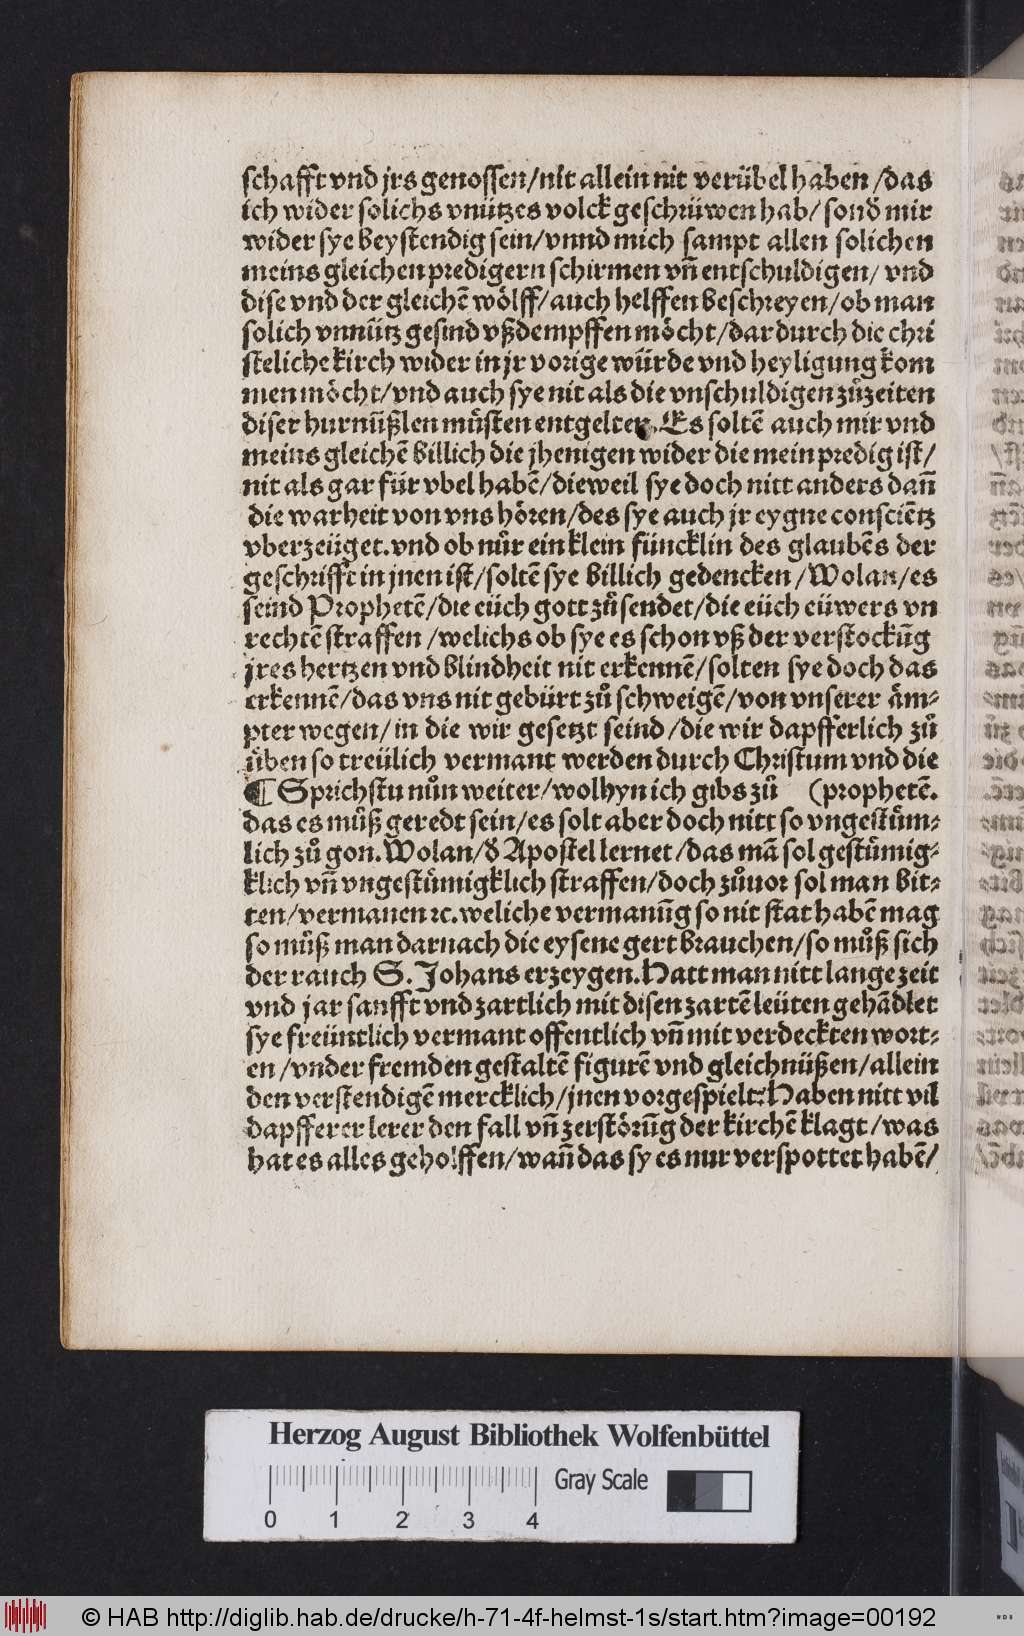 schafft vnd jrs genossen/nit allein nit verübel haben/das
ich wider solichs vnützes volck geschriiwen hab/sonđ mir
wider sye beystendig sein/vnnd mich sampt allen solichen
meins gleichen predigern schirmen vñ entschuldigen/ vnd
dise vnd der gleichẽ wölff/auch helffen beschreyen/ob man
solich vnnütz gesind vßdempffen möcht/dar durch die chri
steliche kirch wider in jr vorige würde vnd heyligung kom
men möcht/vnd auch sye nit als die vnschuldigen zůzeiten
diser hurnüßlen müsten entgelten. Es soltẽ auch mir vnd
meins gleichẽ billich die jhenigen wider die mein predig ist/
nit als gar für vbel habẽ/dieweil sye doch nitt anders dañ
die warheit von vns hören/des sye auch jr eygne consciẽtz
vberzeüget.vnd ob nůr ein klein füncklin des glaubẽs der
geschrifft in jnen ist/soltẽ sye billich gedencken/Wolan/es
seind Prophetẽ/die eüch gott zůsendet/die eüch eüwers vn
rechtẽ straffen/welichs ob sye es schon vß der verstockũg
jres hertzen vnd blindheit nit erkennẽ/solten sye doch das
erkennẽ/das vns nit gebürt zů schweigẽ/von vnserer äm⸗
pter wegen/in die wir gesetzt seind/die wir dapfferlich zů
üben so treülich vermant werden durch Christum vnd die
¶ Sprichstu nůn weiter/wolhyn ich gibs zů (prophetẽ.
das es můß geredt sein/es solt aber doch nitt so vngestüm⸗
lich zů gon.Wolan/đ Apostel lernet/das mã sol gestümig⸗
klich vñ vngestümigklich straffen/doch zůuor sol man bit⸗
ten/vermanen ꝛc.weliche vermanũg so nit stat habẽ mag
so můß man darnach die eysene gert brauchen/so můß sich
der rauch S. Johans erzeygen.Hatt man nitt lange zeit
vnd jar sanfft vnd zartlich mit disen zartẽ leüten gehãdlet
sye freüntlich vermant offentlich vñ mit verdeckten wort⸗
en/vnder fremden gestaltẽ figurẽ vnd gleichnüßen/allein
den verstendigẽ mercklich/jnen vorgespielt:Haben nitt vil
dapfferer lerer den fall vñ zerstörũg der kirchẽ klagt/was
hat es alles geholffen/wañ das sy es nur verspottet habẽ/
Herzog August Bibliothek Wolfenbüttel
Gray Scale
0 1 2 3 4
© HAB http://diglib.hab.de/drucke/h-71-4f-helmst-1s/start.htm?image=00192